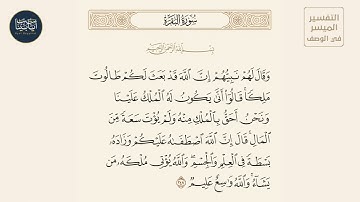 سُورَةُ البَقَرَةِ
التفسير
الميسر
في الوصف
بِسْمِ اللَّهِ الرَّحْمَٰنِ الرَّحِيمِ
وَقَالَ لَهُمْ نَبِيُّهُمْ إِنَّ اللَّهَ قَدْ بَعَثَ لَكُمْ طَالُوتَ
مَلِكًا ۚ قَالُوٓا۟ أَنَّىٰ يَكُونُ لَهُ الْمُلْكُ عَلَيْنَا
وَنَحْنُ أَحَقُّ بِالْمُلْكِ مِنْهُ وَلَمْ يُؤْتَ سَعَةً مِّنَ
الْمَالِ ۚ قَالَ إِنَّ اللَّهَ اصْطَفَىٰهُ عَلَيْكُمْ وَزَادَهُۥ
بَسْطَةً فِي الْعِلْمِ وَالْجِسْمِ ۖ وَاللَّهُ يُؤْتِي مُلْكَهُۥ مَن
يَشَآءُ ۚ وَاللَّهُ وَٰسِعٌ عَلِيمٌ